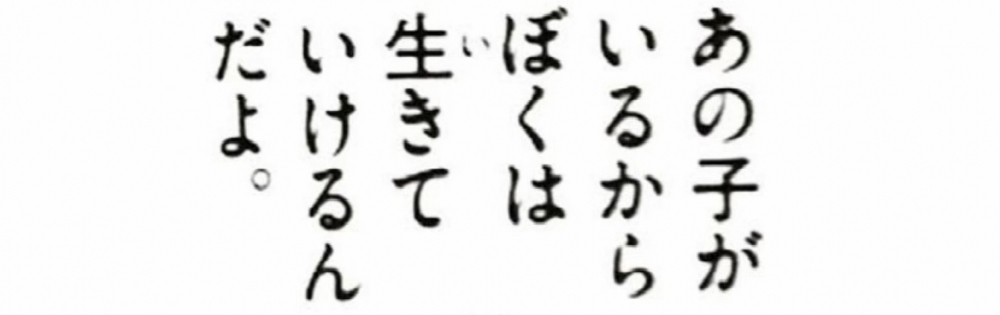 あの子が
いるから
ぼくは
生きて
いけるん
だよ。